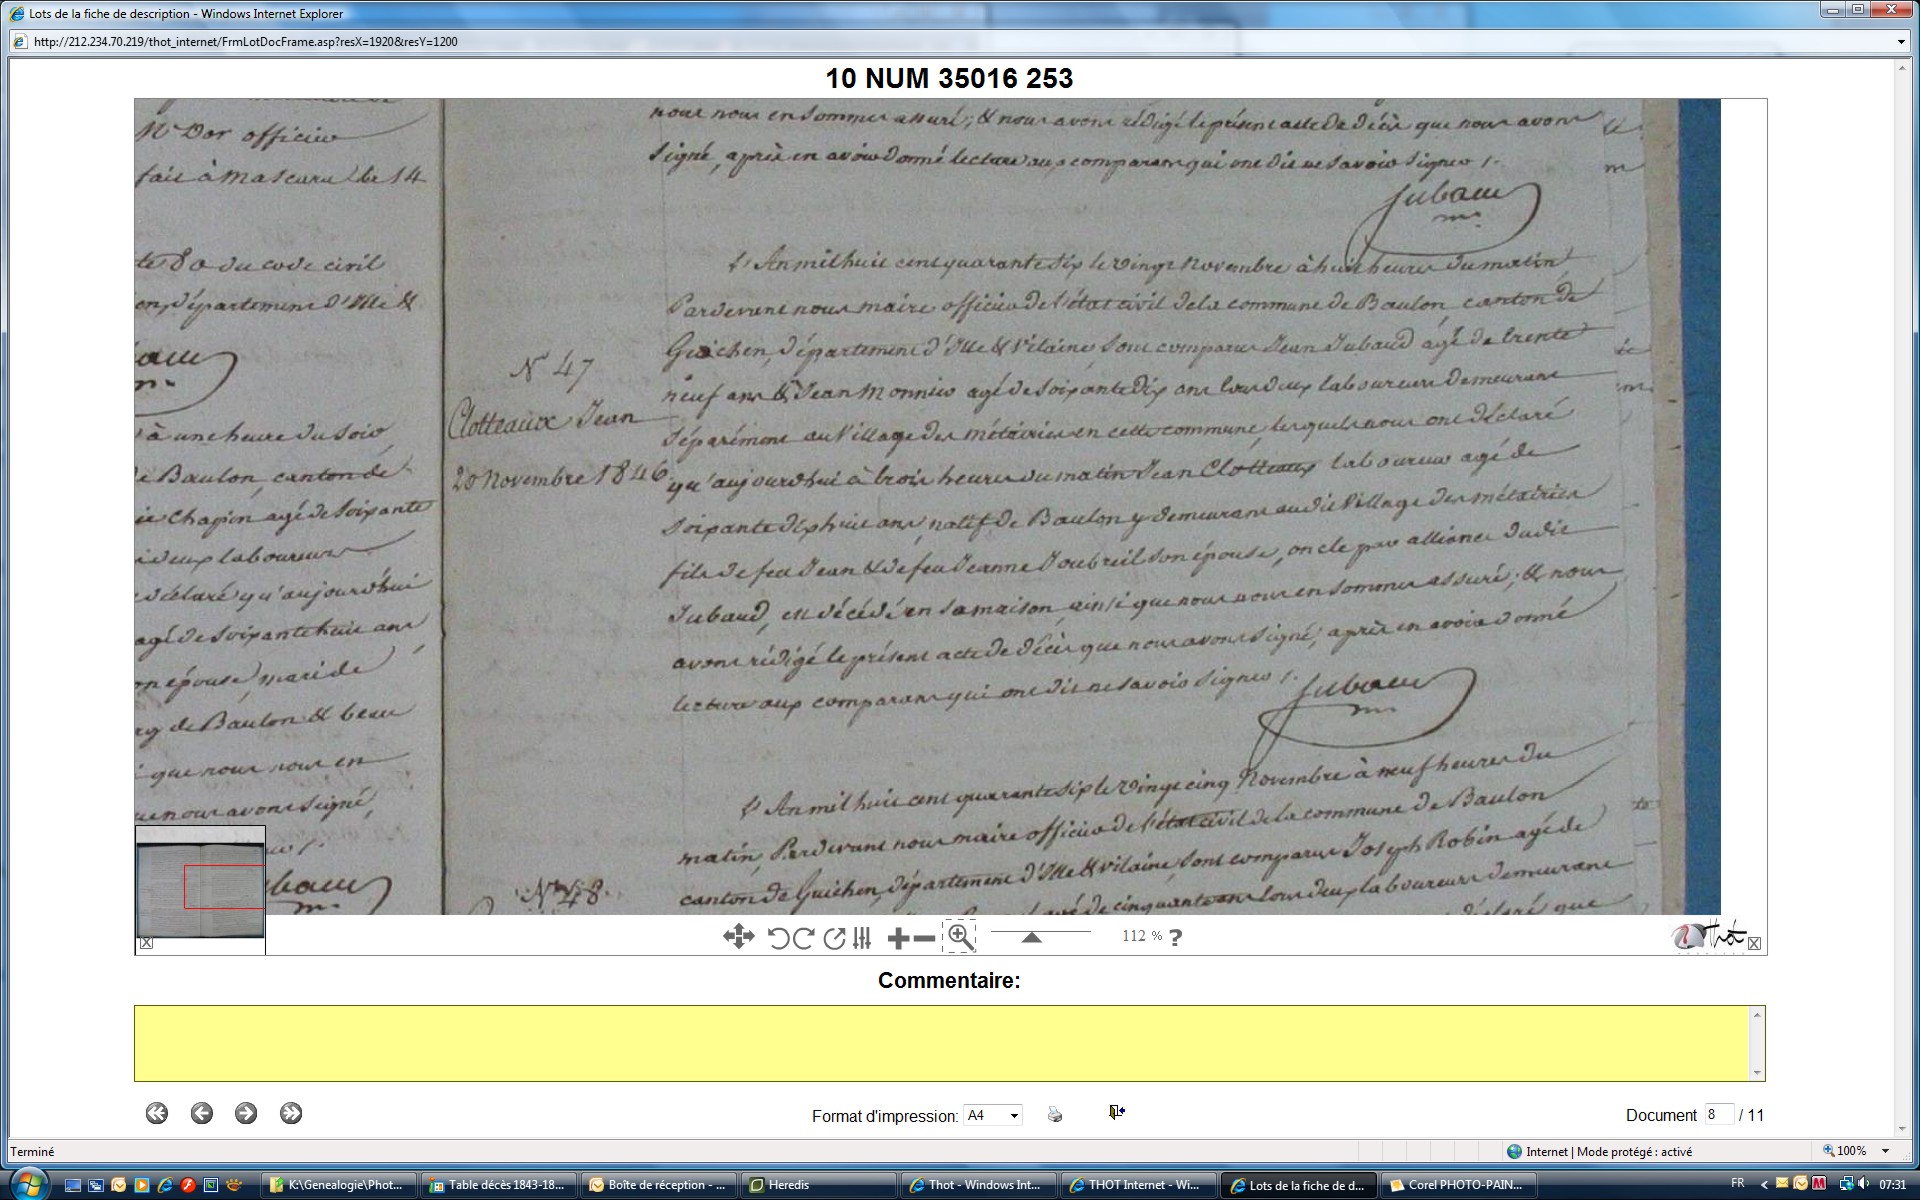 Lots de la fiche de description - Windows Internet Explorer
http://212.234.70.219/thot_internet/FrmLotDocFrame.asp?resX=1920&resY=1200
10 NUM 35016 253
Mr Dor officier
fait à Mascara le 14
te 80 du code civil
en, département d'Ille &
à une heure du soir,
de Baulon, canton de
Chapin agé de soixante
deux laboureurs
déclaré qu'aujourd'hui
agé de soixante huit ans
son épouse, mari de
de Baulon & beau
que nous nous en
que nous avons signé,
nous nous en sommes assuré; & nous avons rédigé le présent acte de décès que nous avons
signé, après en avoir donné lecture aux comparans qui ont dit ne savoir signer /.
Jubaud
N° 47
Clotteaux Jean
20 Novembre 1846
L'An mil huit cent quarante six le vingt Novembre à huit heures du matin
Pardevant nous maire officier de l'état civil de la commune de Baulon, canton de
Guichen, département d'Ille & Vilaine, sont comparus Jean Jubaud agé de trente
neuf ans & Jean Monnier agé de soixante dix ans tous deux laboureurs demeurant
séparément au village des métairies en cette commune, lesquels nous ont déclaré
qu'aujourd'hui à trois heures du matin Jean Clotteaux laboureur agé de
soixante dix huit ans, natif de Baulon y demeurant au dit village des métairies
fils de feu Jean & de feu Jeanne Joubreil son épouse, oncle par alliance dudit
Jubaud, est décédé en sa maison, ainsi que nous nous en sommes assuré; & nous
avons rédigé le présent acte de décès que nous avons signé, après en avoir donné
lecture aux comparans qui ont dit ne savoir signer /.
Jubaud
N° 48
L'An mil huit cent quarante six le vingt cinq Novembre à neuf heures du
matin, Pardevant nous maire officier de l'état civil de la commune de Baulon
canton de Guichen, département d'Ille & Vilaine, sont comparus Joseph Robin agé de
agé de cinquante ans tous deux laboureurs demeurant
déclaré que
112 %
Thot
Commentaire:
Format d'impression: A4
Document 8 / 11
Terminé
Internet | Mode protégé : activé
100%
K:\Genealogie\Phot...
Table décès 1843-18...
Boîte de réception - ...
Heredis
Thot - Windows Int...
THOT Internet - Wi...
Lots de la fiche de d...
Corel PHOTO-PAIN...
FR
07:31